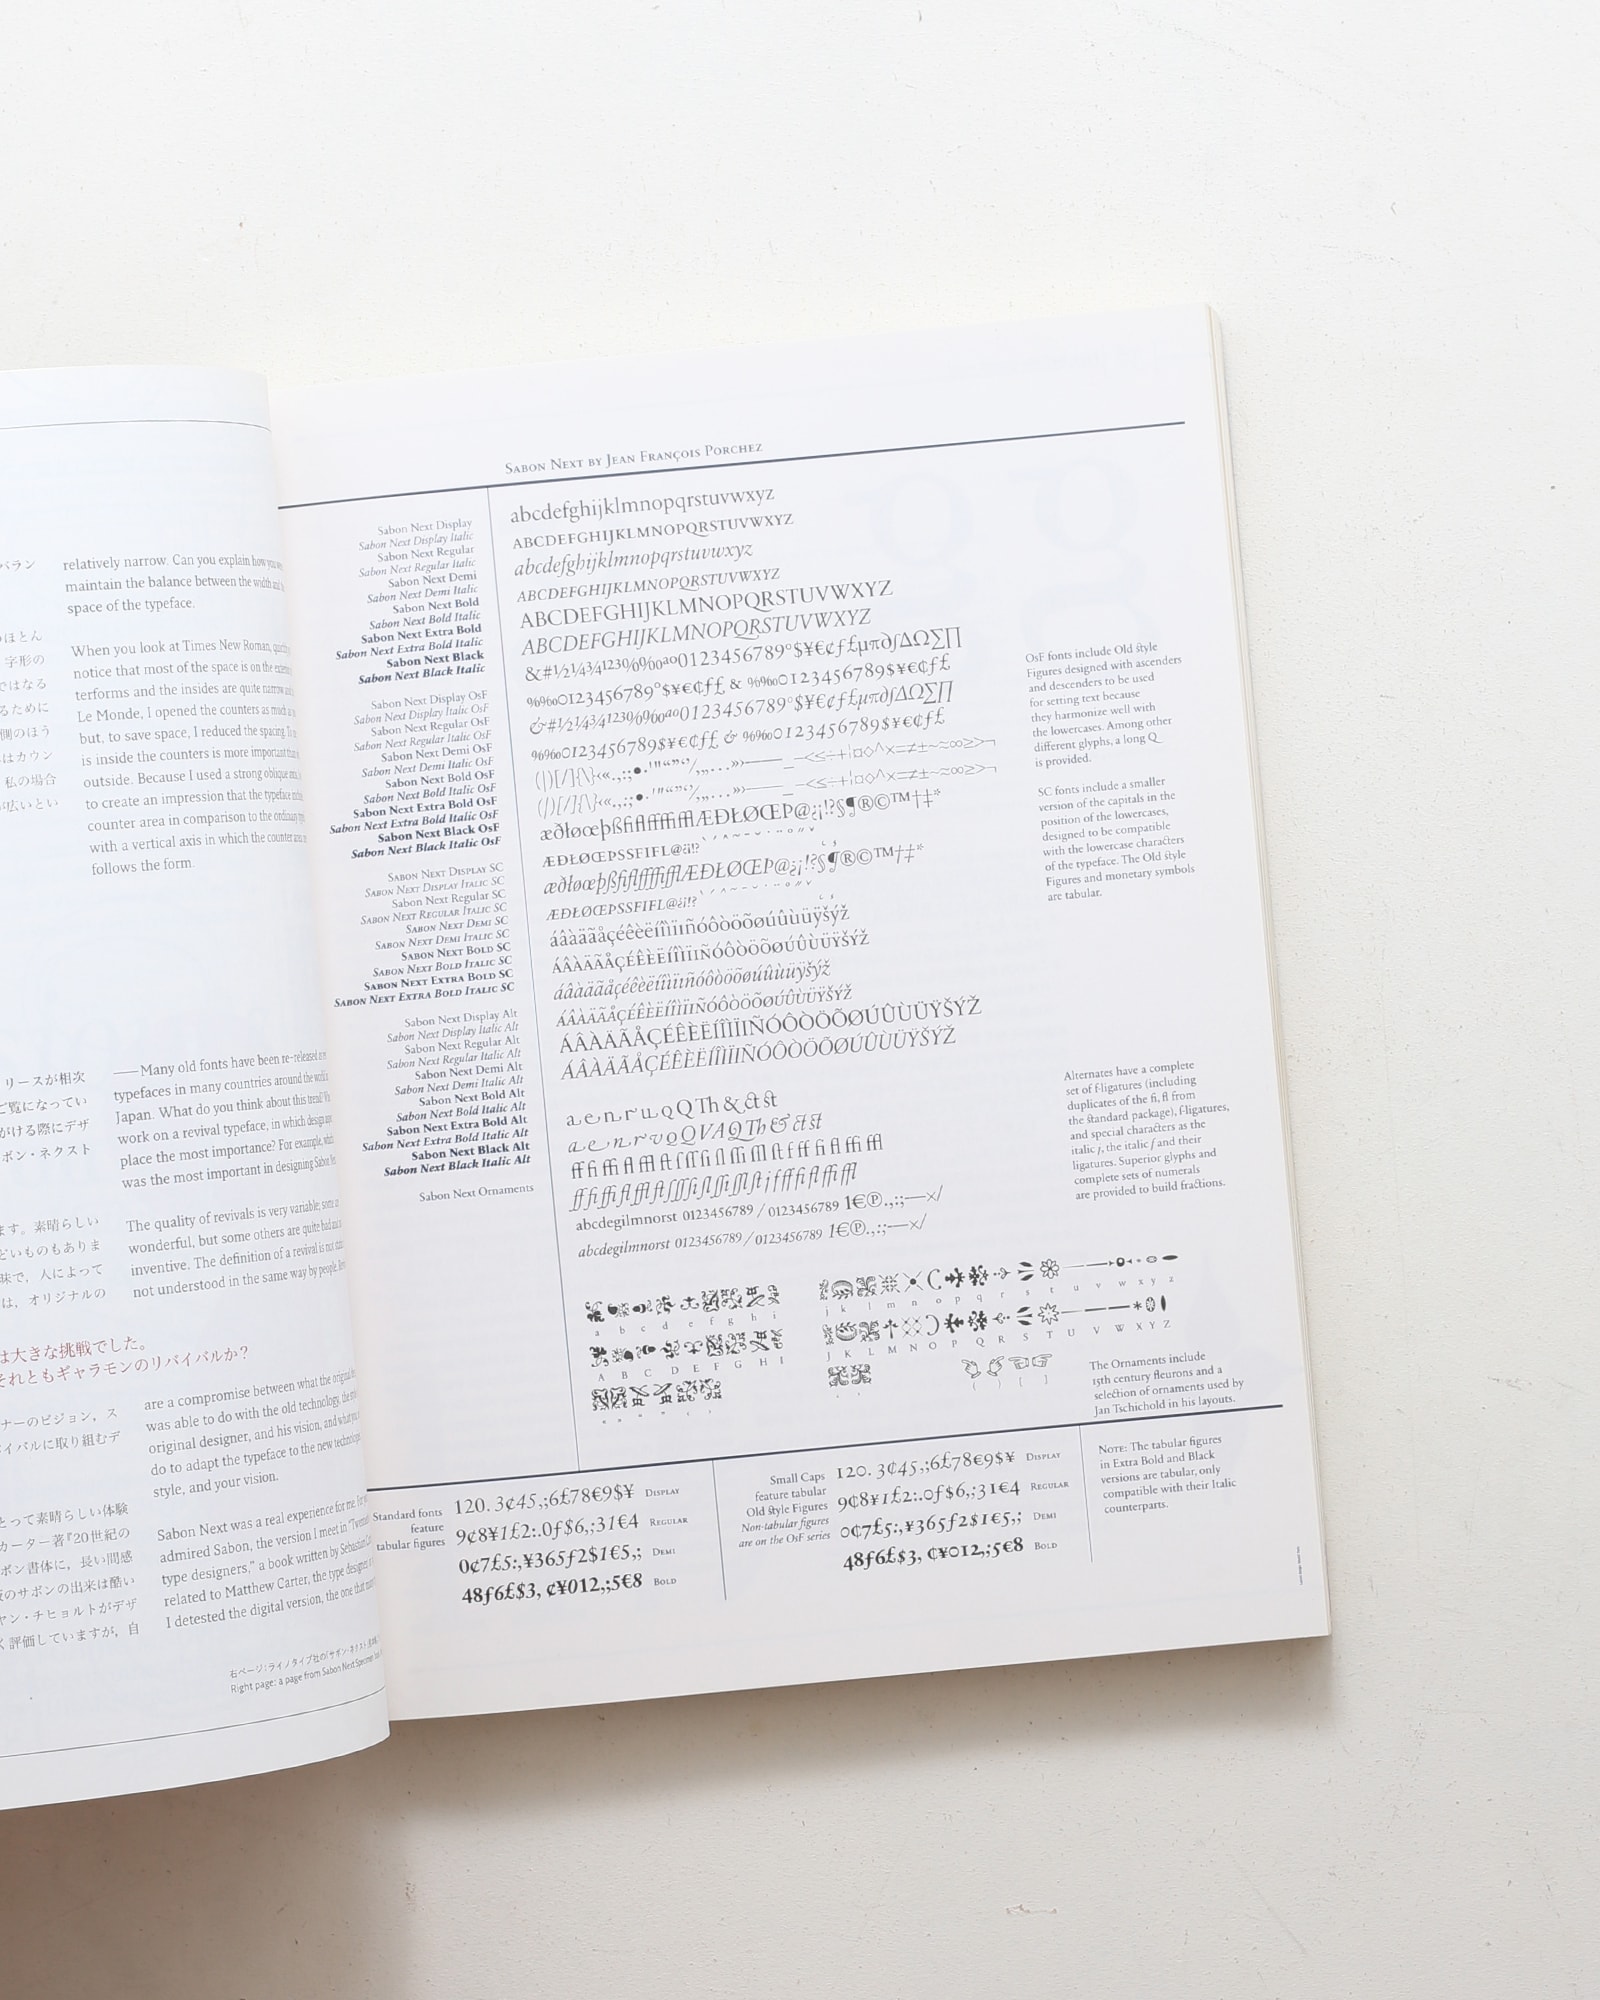 バラン
のほとん
字形の
ではなる
るために
側のほう
はカウン
私の場合
が広いとい
リースが相次
ご覧になってい
がける際にデザ
ボン・ネクスト
ます。素晴らしい
どいものもありま
味で，人によって
は，オリジナルの
は大きな挑戦でした。
それともギャラモンのリバイバルか？
ナーのビジョン，ス
バイバルに取り組むデ
とって素晴らしい体験
カーター著『20世紀の
ボン書体に，長い間感
版のサボンの出来は酷い
ヤン・チヒョルトがデザ
く評価していますが，自
relatively narrow. Can you explain how you
maintain the balance between the width and
space of the typeface.
When you look at Times New Roman,
notice that most of the space is on the
terforms and the insides are quite narrow
Le Monde, I opened the counters as much as
but, to save space, I reduced the spacing.
is inside the counters is more important
outside. Because I used a strong oblique
to create an impression that the typeface
counter area in comparison to the ordinary
with a vertical axis in which the counter
follows the form.
——Many old fonts have been re-released
typefaces in many countries around the
Japan. What do you think about this trend?
work on a revival typeface, in which
place the most importance? For example,
was the most important in designing Sabon
The quality of revivals is very variable;
wonderful, but some others are quite bad
inventive. The definition of a revival is not
not understood in the same way by people.
are a compromise between what the original
was able to do with the old technology,
original designer, and his vision, and what you
do to adapt the typeface to the new
style, and your vision.
Sabon Next was a real experience for me.
admired Sabon, the version I meet in
type designers," a book written by Sebastian
related to Matthew Carter, the type designer
I detested the digital version, the one that
右ページ：ライノタイプ社の「サボン・ネクスト」
Right page: a page from Sabon Next Specimen
Sabon Next by Jean François Porchez
Sabon Next Display
Sabon Next Display Italic
Sabon Next Regular
Sabon Next Regular Italic
Sabon Next Demi
Sabon Next Demi Italic
Sabon Next Bold
Sabon Next Bold Italic
Sabon Next Extra Bold
Sabon Next Extra Bold Italic
Sabon Next Black
Sabon Next Black Italic
Sabon Next Display OsF
Sabon Next Display Italic OsF
Sabon Next Regular OsF
Sabon Next Regular Italic OsF
Sabon Next Demi OsF
Sabon Next Demi Italic OsF
Sabon Next Bold OsF
Sabon Next Bold Italic OsF
Sabon Next Extra Bold OsF
Sabon Next Extra Bold Italic OsF
Sabon Next Black OsF
Sabon Next Black Italic OsF
Sabon Next Display SC
Sabon Next Display Italic SC
Sabon Next Regular SC
Sabon Next Regular Italic SC
Sabon Next Demi SC
Sabon Next Demi Italic SC
Sabon Next Bold SC
Sabon Next Bold Italic SC
Sabon Next Extra Bold SC
Sabon Next Extra Bold Italic SC
Sabon Next Display Alt
Sabon Next Display Italic Alt
Sabon Next Regular Alt
Sabon Next Regular Italic Alt
Sabon Next Demi Alt
Sabon Next Demi Italic Alt
Sabon Next Bold Alt
Sabon Next Bold Italic Alt
Sabon Next Extra Bold Alt
Sabon Next Extra Bold Italic Alt
Sabon Next Black Alt
Sabon Next Black Italic Alt
Sabon Next Ornaments
abcdefghijklmnopqrstuvwxyz
ABCDEFGHIJKLMNOPQRSTUVWXYZ
abcdefghijklmnopqrstuvwxyz
ABCDEFGHIJKLMNOPQRSTUVWXYZ
ABCDEFGHIJKLMNOPQRSTUVWXYZ
ABCDEFGHIJKLMNOPQRSTUVWXYZ
&#½¼¾123%‰ao0123456789°$¥€¢ƒ£µπ∂∫ΔΩ∑∏
%‰0123456789°$¥€¢ƒ£ & %‰0123456789$¥€¢ƒ£
&#½¼¾123%‰ao0123456789°$¥€¢ƒ£µπ∂∫ΔΩ∑∏
%‰0123456789$¥€¢ƒ£ & %‰0123456789$¥€¢ƒ£
æðłøœþßfiflffffiffl ÆÐŁØŒÞ@¿¡!?§¶®©™†‡*
ÆÐŁØŒÞSSFIFL@¿¡!?
æðłøœþßfiflffffiffl ÆÐŁØŒÞ@¿¡!?§¶®©™†‡*
ÆÐŁØŒÞSSFIFL@¿¡!?
áâàäãåçéêèëíîìïıñóôòöõøúûùüÿšýž
ÁÂÀÄÃÅÇÉÊÈËÍÎÌÏIÑÓÔÒÖÕØÚÛÙÜŸŠÝŽ
áâàäãåçéêèëíîìïıñóôòöõøúûùüÿšýž
ÁÂÀÄÃÅÇÉÊÈËÍÎÌÏIÑÓÔÒÖÕØÚÛÙÜŸŠÝŽ
ÁÂÀÄÃÅÇÉÊÈËÍÎÌÏIÑÓÔÒÖÕØÚÛÙÜŸŠÝŽ
ÁÂÀÄÃÅÇÉÊÈËÍÎÌÏIÑÓÔÒÖÕØÚÛÙÜŸŠÝŽ
a e n r u q Q Th & ct st
a e n r v o Q V A Q Th & ct st
abcdegilmnorst 0123456789 / 0123456789 1€℗.,:;—×/
abcdegilmnorst 0123456789 / 0123456789 1€℗.,:;—×/
a b c d e f g h i
A B C D E F G H I
j k l m n o p q r s t u v w x y z
J K L M N O P Q R S T U V W X Y Z
( ) [ ]
OsF fonts include Old style
Figures designed with ascenders
and descenders to be used
for setting text because
they harmonize well with
the lowercases. Among other
different glyphs, a long Q
is provided.
SC fonts include a smaller
version of the capitals in the
position of the lowercases,
designed to be compatible
with the lowercase characters
of the typeface. The Old style
Figures and monetary symbols
are tabular.
Alternates have a complete
set of f-ligatures (including
duplicates of the fi, fl from
the standard package), f-ligatures,
and special characters as the
italic j, the italic f and their
ligatures. Superior glyphs and
complete sets of numerals
are provided to build fractions.
The Ornaments include
15th century fleurons and a
selection of ornaments used by
Jan Tschichold in his layouts.
Standard fonts
feature
tabular figures
120. 3¢45,;6£78€9$¥ Display
9¢8¥1£2:.0ƒ$6,;31€4 Regular
0¢7£5:,¥365ƒ2$1€5,; Demi
48ƒ6£$3, ¢¥012,;5€8 Bold
Small Caps
feature tabular
Old style Figures
Non-tabular figures
are on the OsF series
120. 3¢45,;6£78€9$¥ Display
9¢8¥1£2:.0ƒ$6,;31€4 Regular
0¢7£5:,¥365ƒ2$1€5,; Demi
48ƒ6£$3, ¢¥012,;5€8 Bold
Note: The tabular figures
in Extra Bold and Black
versions are tabular, only
compatible with their Italic
counterparts.